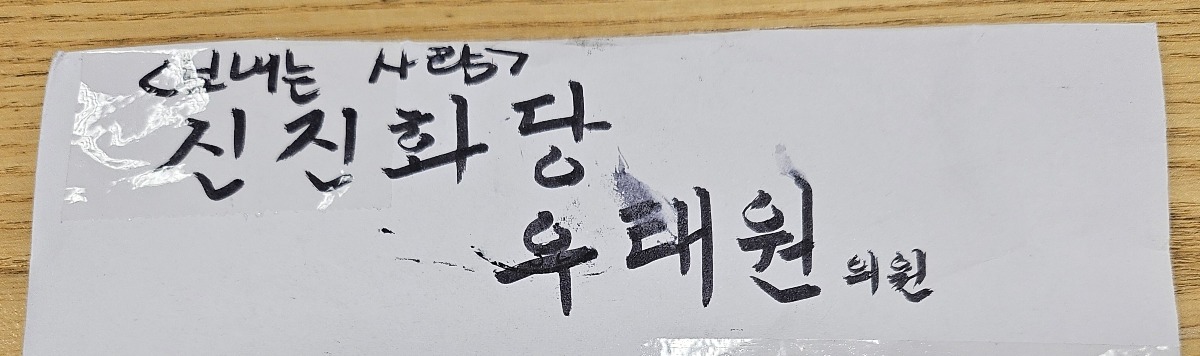 <보내는 사람>
진진화당
우태원 의원